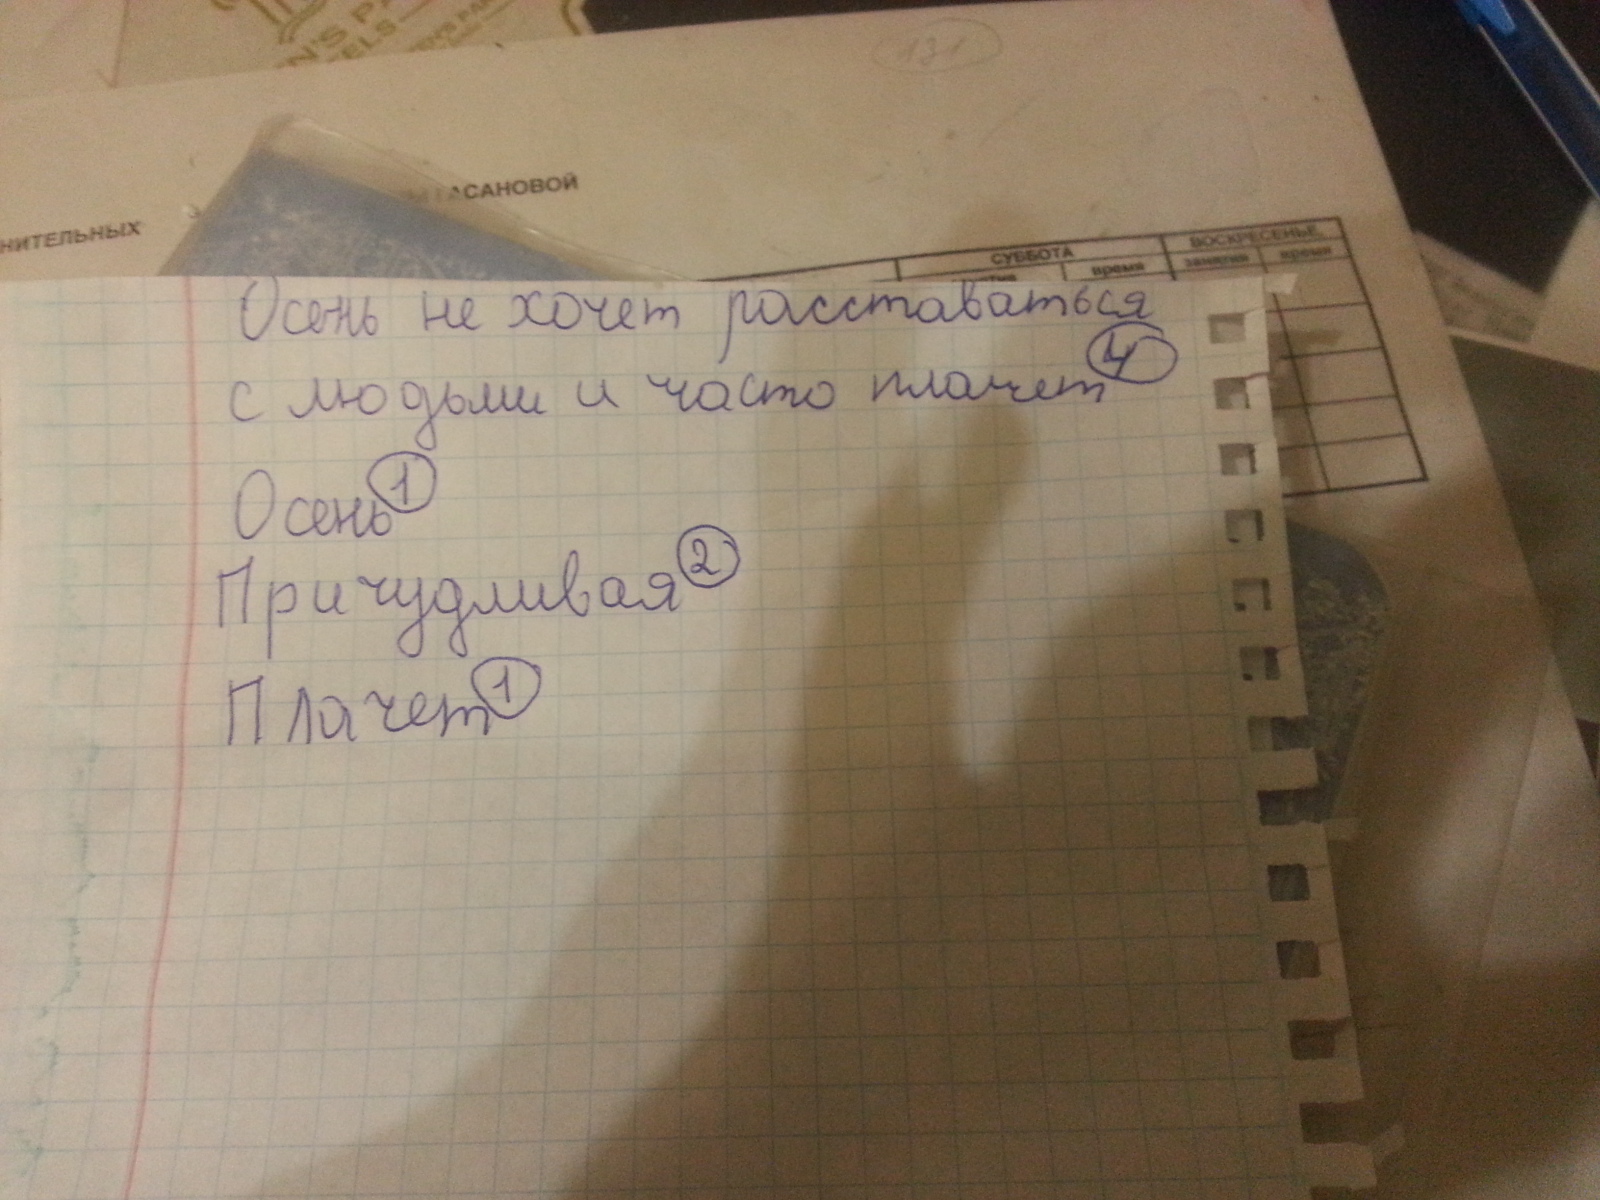 131
АСАНОВОЙ
НИТЕЛЬНЫХ
СУББОТА ВОСКРЕСЕНЬЕ
время занятия время
Осень не хочет расставаться
с людьми и часто плачет 4
Осень 1
Причудливая 2
Плачет 1